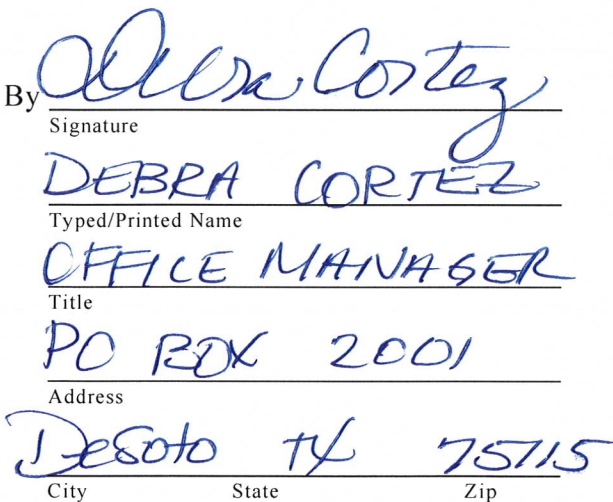 By Debra Cortez
Signature
DEBRA CORTEZ
Typed/Printed Name
OFFICE MANAGER
Title
PO BOX 2001
Address
DeSoto TX 75115
City State Zip